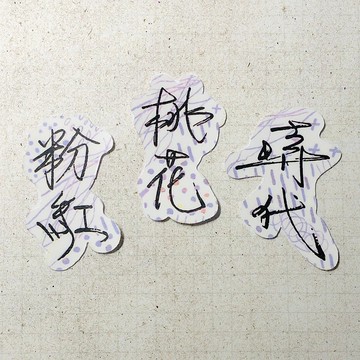 粉紅
桃花
時代